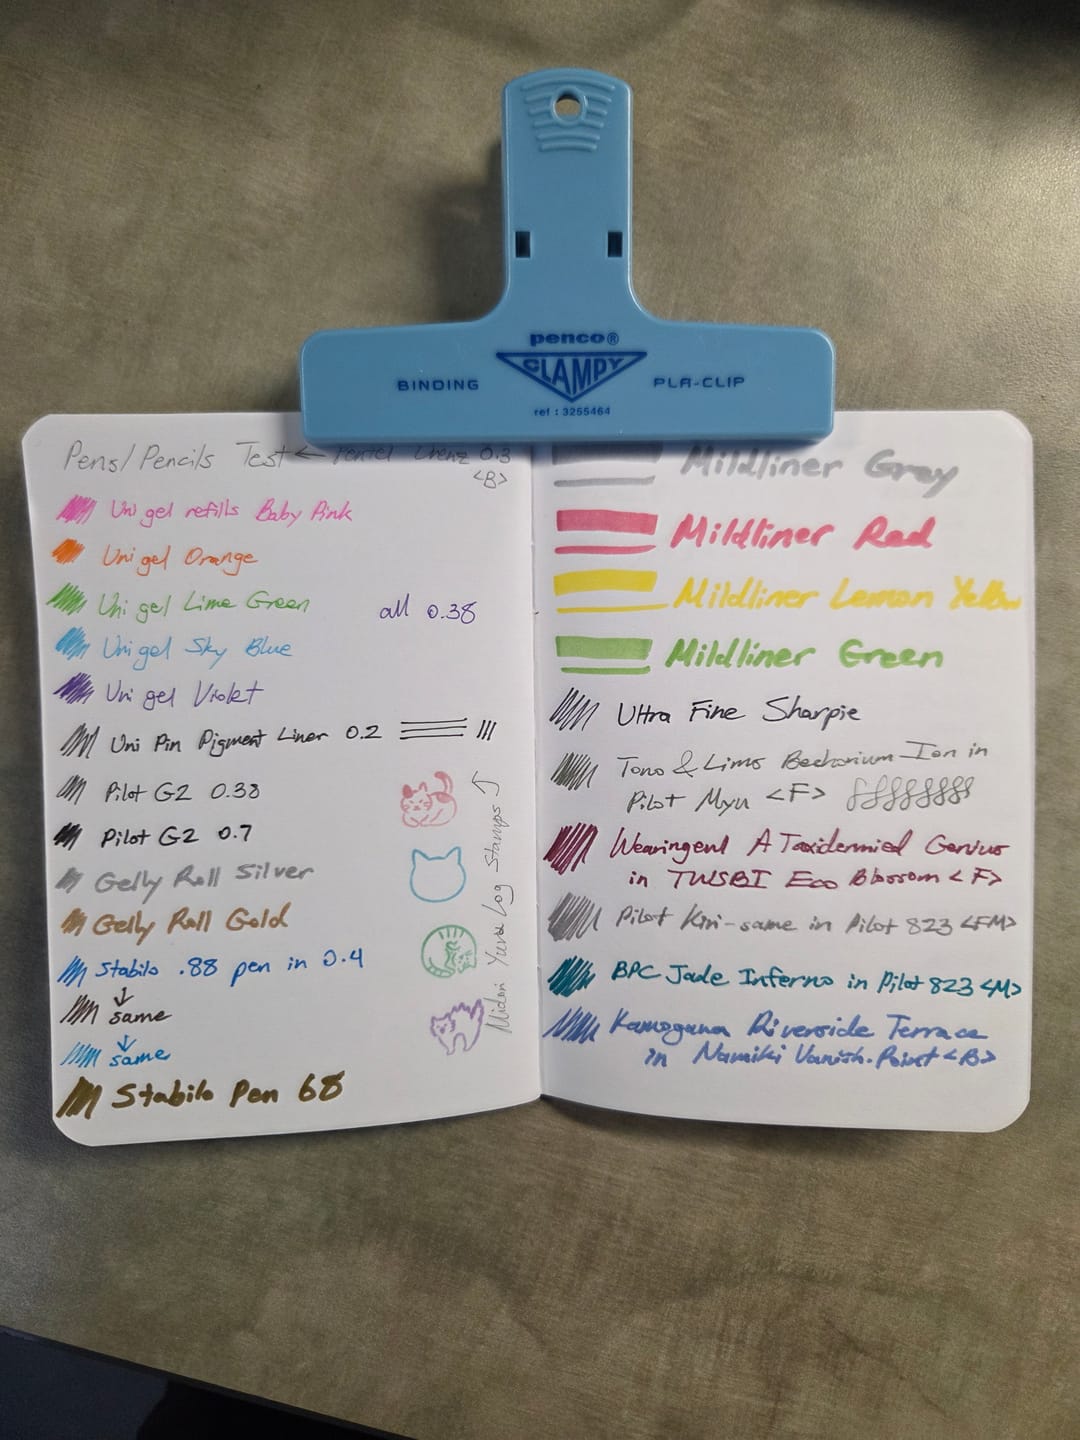 penco®
CLAMPY
BINDING
PLA-CLIP
ref : 3255464
Pens/Pencils Test ← Pentel Orenz 0.3
<B>
Uni gel refills Baby Pink
Uni gel Orange
Uni gel Lime Green
all 0.38
Uni gel Sky Blue
Uni gel Violet
Uni Pin Pigment Liner 0.2
Pilot G2 0.38
Pilot G2 0.7
Gelly Roll Silver
Gelly Roll Gold
Stabilo .88 pen in 0.4
↓
same
↓
same
Stabilo Pen 68
Midori Log Stamps
Mildliner Gray
Mildliner Red
Mildliner Lemon Yellow
Mildliner Green
Ultra Fine Sharpie
Tono & Lims Ion in
Pilot Myu <F>
Wearingeul A Taxidermied Genius
in TWSBI Eco Blossom <F>
Pilot Kiri-same in Pilot 823 <FM>
BPC Jade Inferno in Pilot 823 <M>
Kamogawa Riverside Terrace
in Namiki Vanish. Point <B>